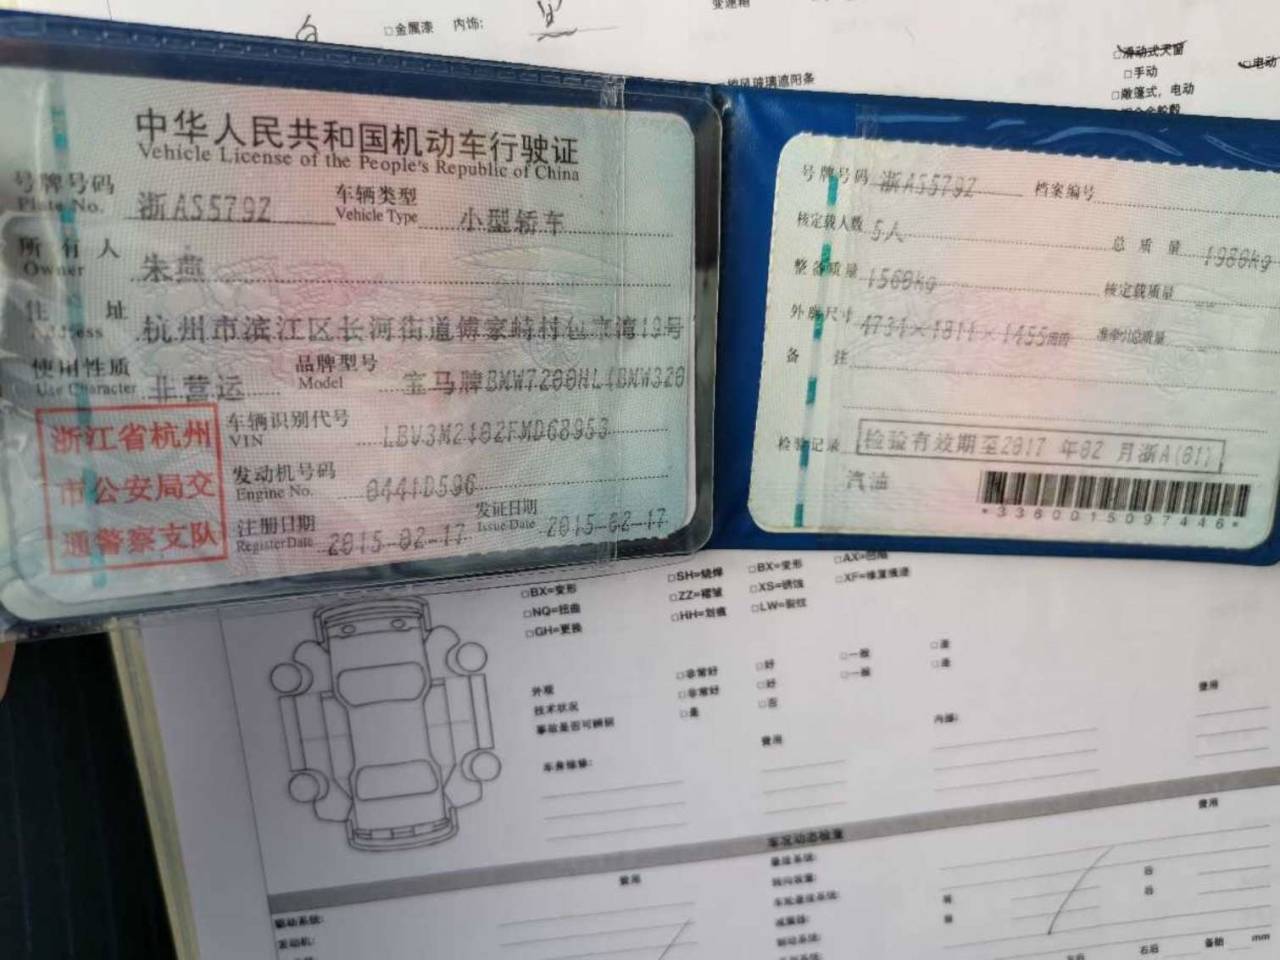 变速箱
□金属漆 内饰:
□滑动式天窗
□手动
□敞篷式，电动
中华人民共和国机动车行驶证
Vehicle License of the People's Republic of China
号牌号码 浙AS579Z 车辆类型 小型轿车
Plate No. Vehicle Type
所有人 朱燕
Owner
住址 杭州市滨江区长河街道傅家峙村包家湾19号
Address
使用性质 非营运 品牌型号 宝马牌BMW7200NL(BMW320
Use Character Model
浙江省杭州
市公安局交
通警察支队
车辆识别代号 LBV3M2102FMD68953
VIN
发动机号码 0441D596
Engine No.
注册日期 2015-02-17 发证日期 2015-02-17
Register Date Issue Date
号牌号码 浙AS579Z 档案编号
核定载人数 5人 总质量 1980kg
整备质量 1560kg 核定载质量 --
外廓尺寸 4734×1811×1455mm 准牵引总质量
备注
检验记录 检验有效期至2017 年02 月浙A(01)
汽油
*3360015097446*
□BX=变形 □SH=烧焊 □BX=变形
□NQ=扭曲 □ZZ=褶皱 □XS=锈蚀 □XF=修复痕迹
□GH=更换 □HH=划痕 □LW=裂纹
外观 □非常好 □好 □一般 □差
技术状况 □非常好 □好 □一般 □差
事故是否可辨别 □是 □否
费用 内部: 费用
车身维修:
车况动态检查
费用 费用
驱动系统:
发动机:
转向装置:
减震器:
制动系统:
右后 备胎 mm